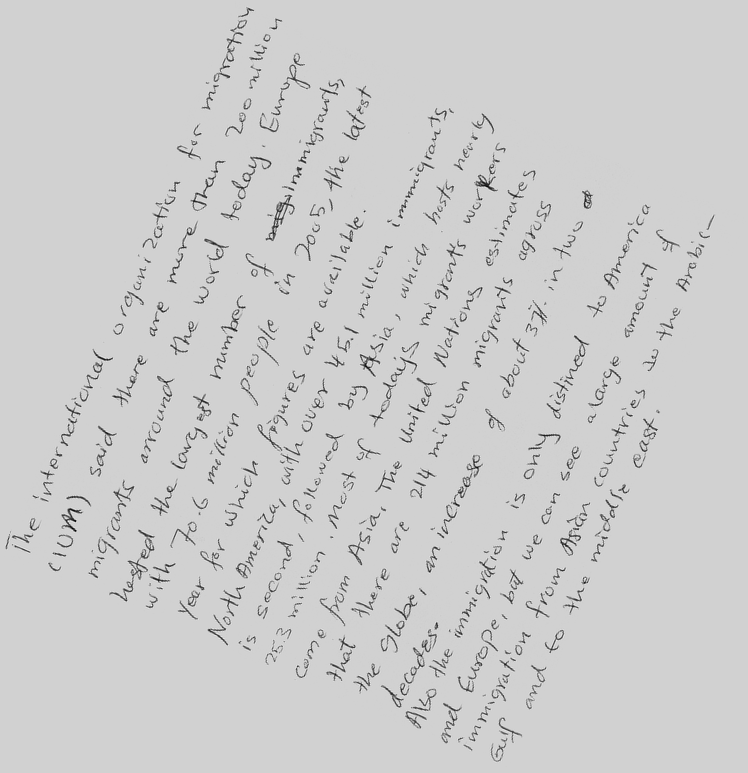 The international organization for migration
(IOM) said there are more than 200 million
migrants arround the world today. Europe
hosted the largest number of immigrants,
with 70.6 million people in 2005, the latest
year for which figures are available.
North America, with over 45.1 million immigrants,
is second, followed by Asia, which hosts nearly
25.3 million. most of todays migrants workers
come from Asia. The United Nations estimates
that there are 214 million migrants agross
the globe, an increase of about 37% in two
decades.
Also the immigration is only distined to America
and Europe, but we can see alarge amount of
immigration from Asian countries to the Arabic
Gulf and to the middle east.